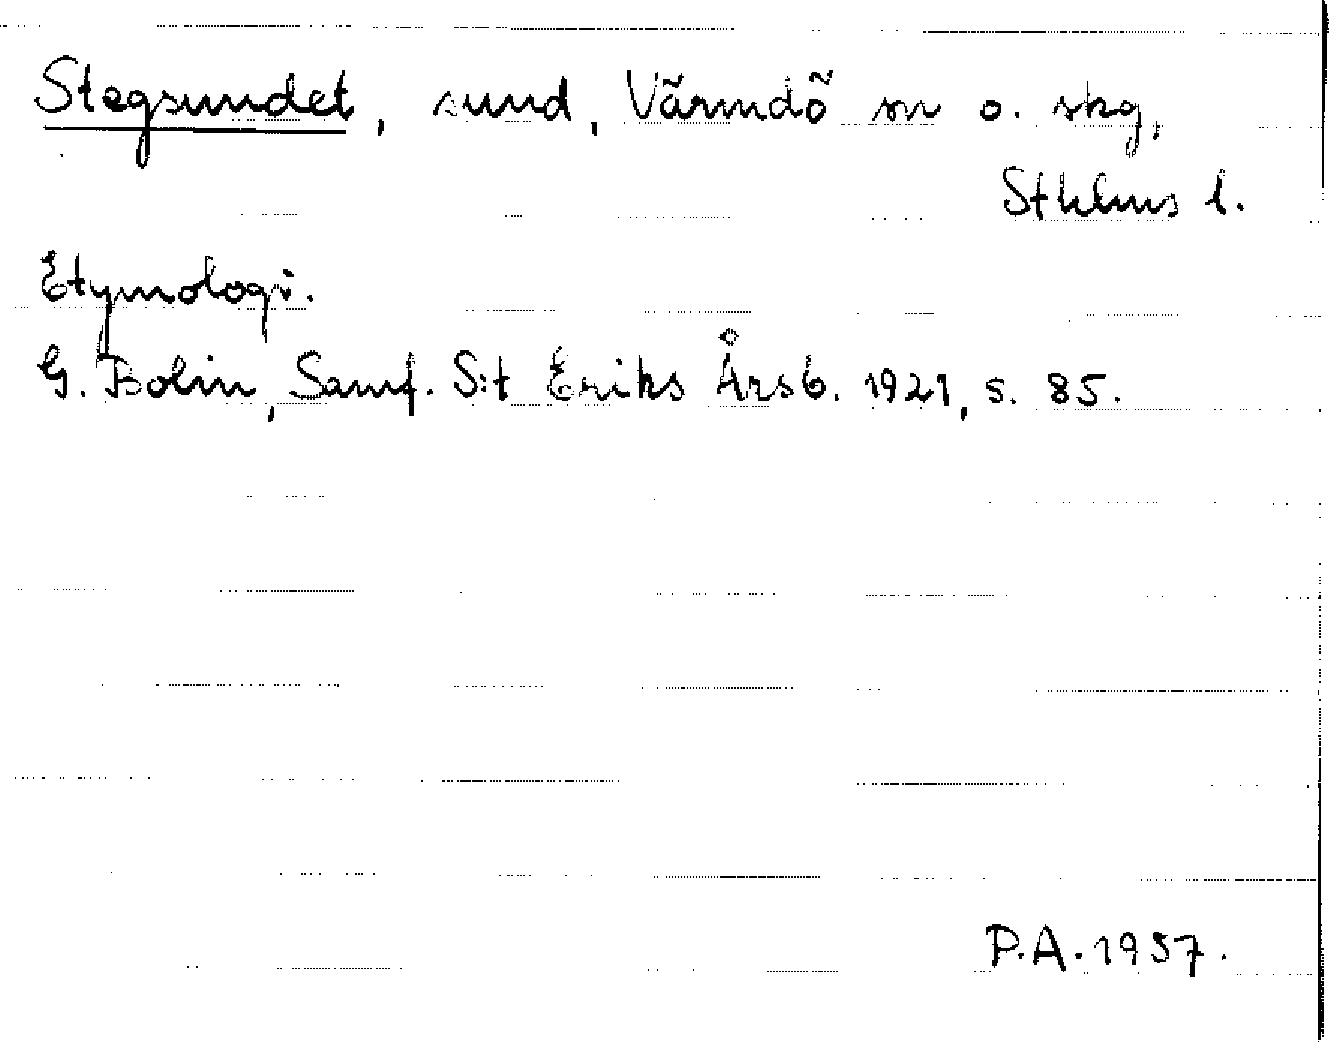 Stegsundet, sund, Värmdö sn o. skg,
Sthlms l.
Etymologi.
G. Bolin, Samf. S:t Eriks Årsb. 1921, s. 85.
P.A. 1957.